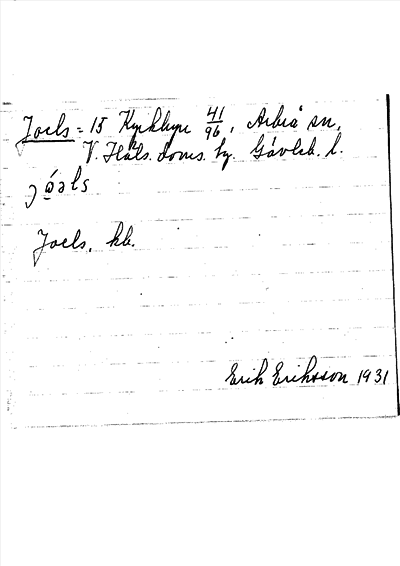 Joels = 15 Kyrkbyn 41/96, Arbrå sn,
V. Häls. doms. hg. Gävleb. l.
jóəls
Joels, kb.
Erik Eriksson 1931